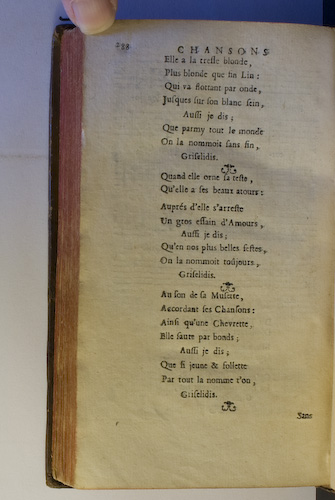 288 CHANSONS
Elle a la tresse blonde,
Plus blonde que fin Lin:
Qui va flottant par onde,
Jusques sur son blanc sein,
Aussi je dis;
Que parmy tout le monde
On la nommoit sans fin,
Griselidis.
Quand elle orne sa teste,
Qu'elle a ses beaux atours:
Auprés d'elle s'arreste
Un gros essain d'Amours,
Aussi je dis;
Qu'en nos plus belles festes,
On la nommoit toûjours,
Griselidis.
Au son de sa Musette,
Accordant ses Chansons:
Ainsi qu'une Chevrette,
Elle saute par bonds;
Aussi je dis;
Que si jeune & follette
Par tout la nomme t'on,
Griselidis.
Sans